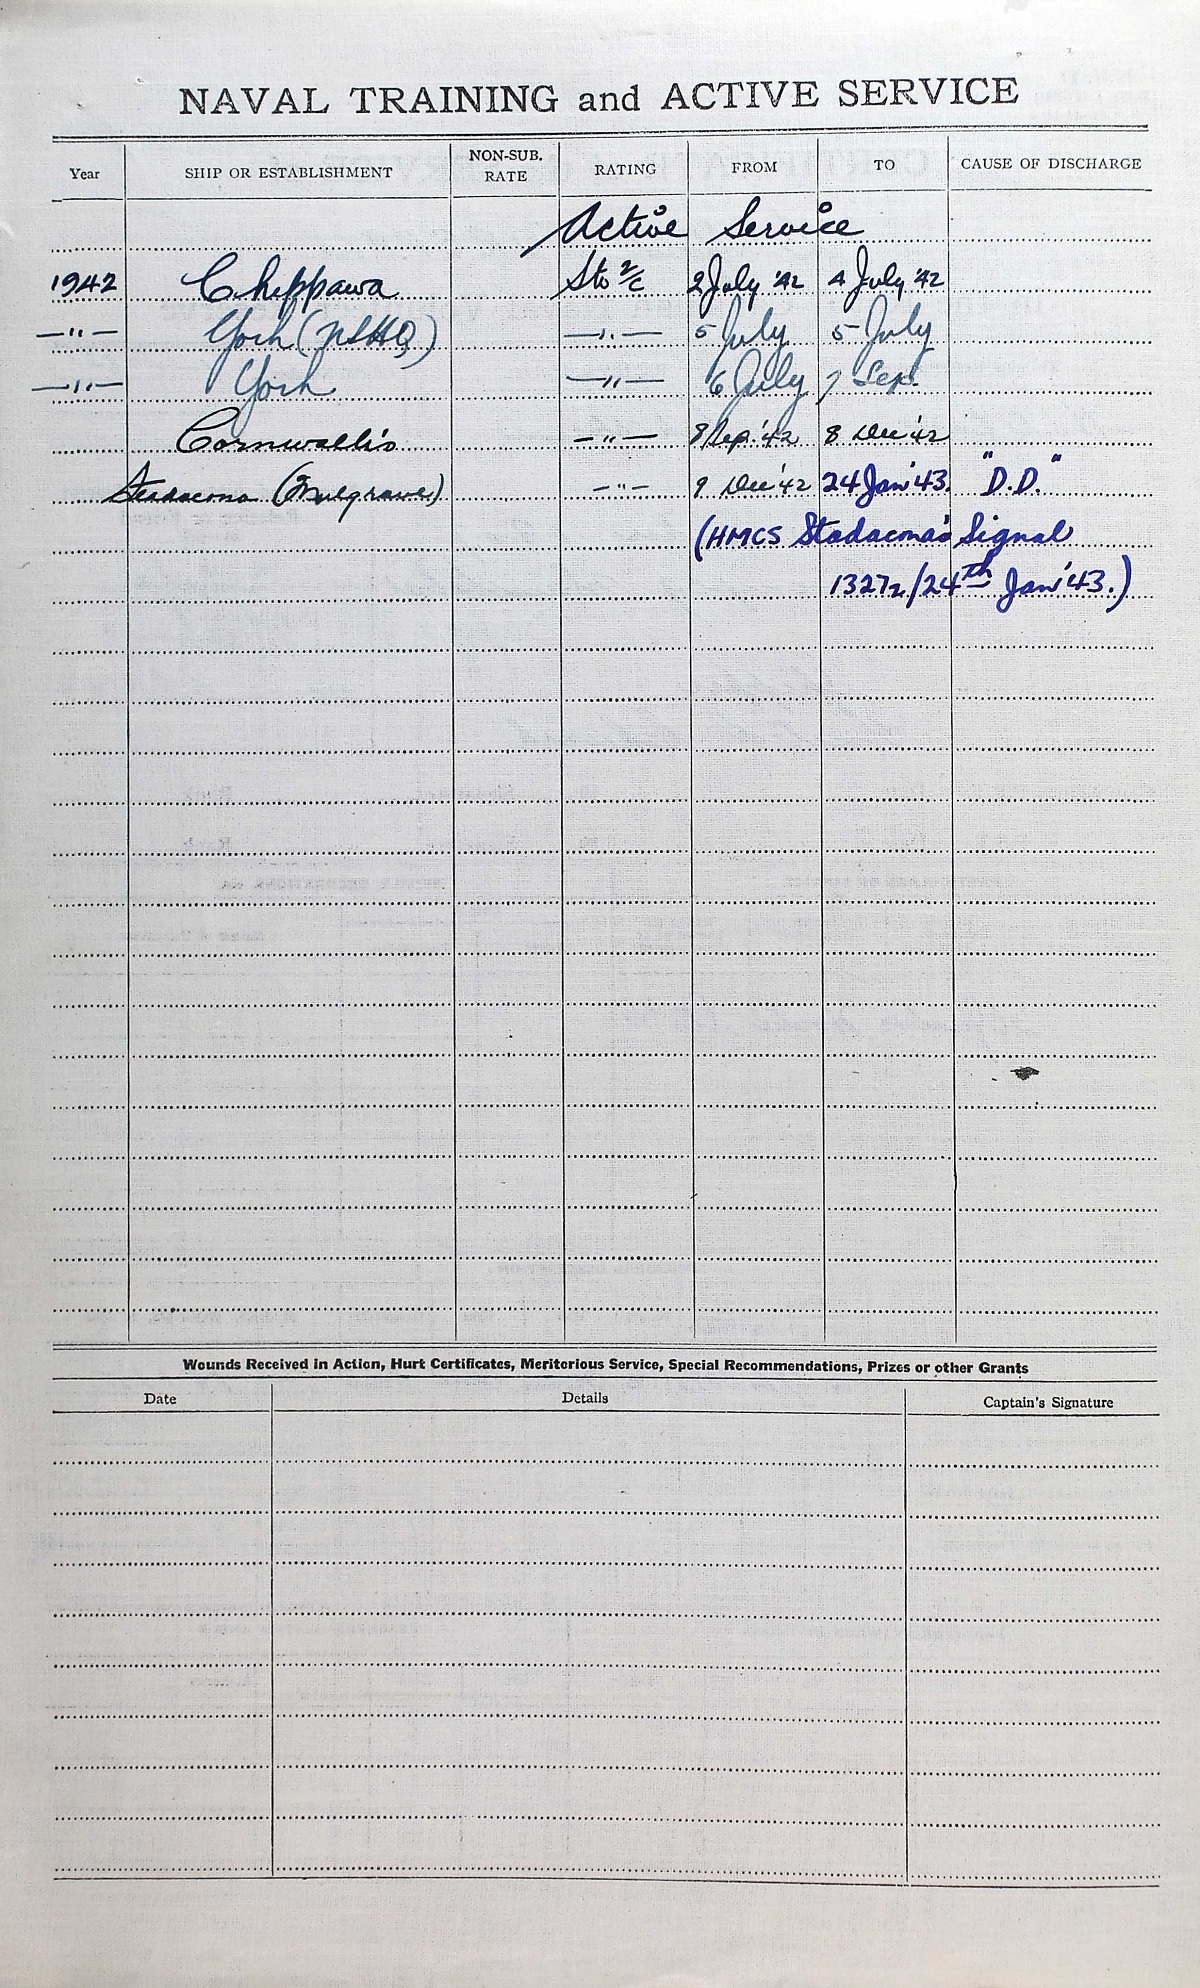 NAVAL TRAINING and ACTIVE SERVICE
Year SHIP OR ESTABLISHMENT NON-SUB. RATE RATING FROM TO CAUSE OF DISCHARGE
Active Service
1942 Chippawa Sto 2/c 2 July '42 4 July '42
—"— York (NSHQ) —"— 5 July 5 July
—"— York —"— 6 July 7 Sep.
Cornwallis —"— 8 Sep. '42 8 Dec '42
Stadacona (Mulgrave) —"— 9 Dec '42 24 Jan '43. "D.D."
(HMCS Stadacona's Signal
1327z/24th Jan '43.)
Wounds Received in Action, Hurt Certificates, Meritorious Service, Special Recommendations, Prizes or other Grants
Date Details Captain's Signature